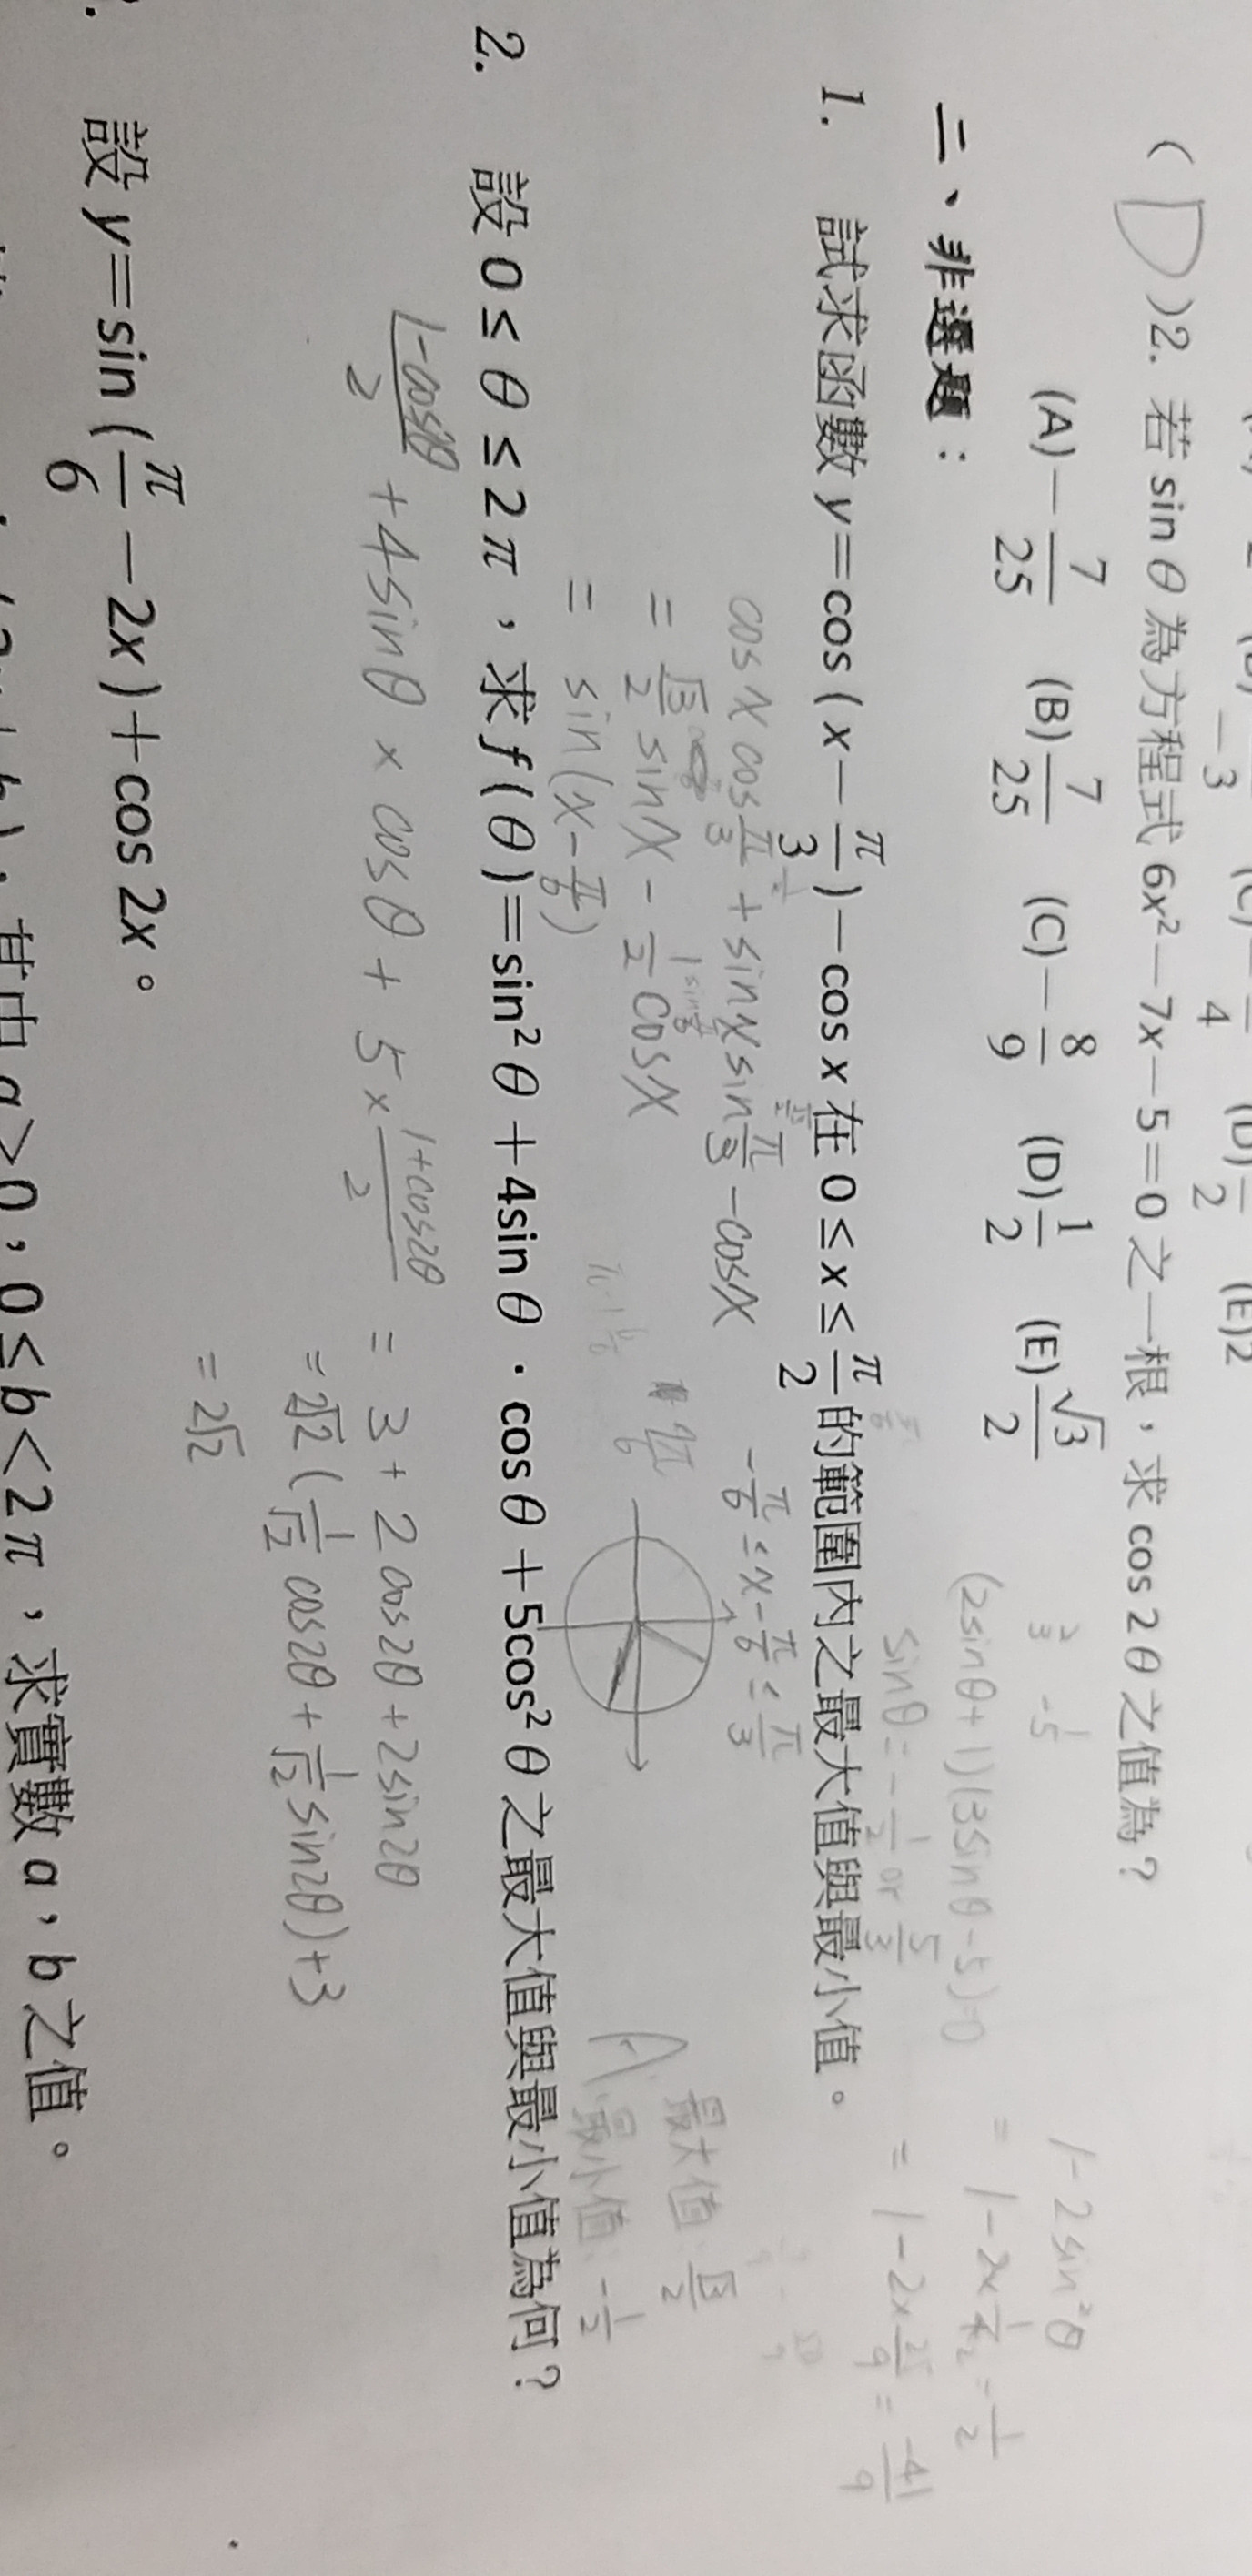 (D)2. 若 sin θ 為方程式 6x²－7x－5＝0 之一根，求 cos 2θ 之值為？
(A)－7/25 (B)7/25 (C)－8/9 (D)1/2 (E)√3/2
(2sinθ+1)(3sinθ-5)=0
sinθ=-1/2 or 5/3
1-2sin²θ
= 1-2×25/9 = -41/9
二、非選題：
1. 試求函數 y＝cos(x－π/3)－cos x 在 0≤x≤π/2 的範圍內之最大值與最小值。
cosx cosπ/3 + sinx sinπ/3 -cosx
= √3/2 sinx - 1/2 cosx
= sin(x-π/6)
-π/6 ≤ x-π/6 ≤ π/3
A: 最大值: √3/2
最小值: -1/2
2. 設 0≤θ≤2π，求 f(θ)＝sin²θ＋4sin θ．cos θ＋5cos²θ 之最大值與最小值為何？
1-cos2θ/2 +4sinθ × cosθ + 5× 1+cos2θ/2 = 3+2cos2θ+2sin2θ
=2√2 (1/√2 cos2θ+1/√2 sin2θ)+3
=2√2
設 y＝sin(π/6－2x)＋cos 2x。
其中 a＞0，0≤b＜2π，求實數 a，b 之值。